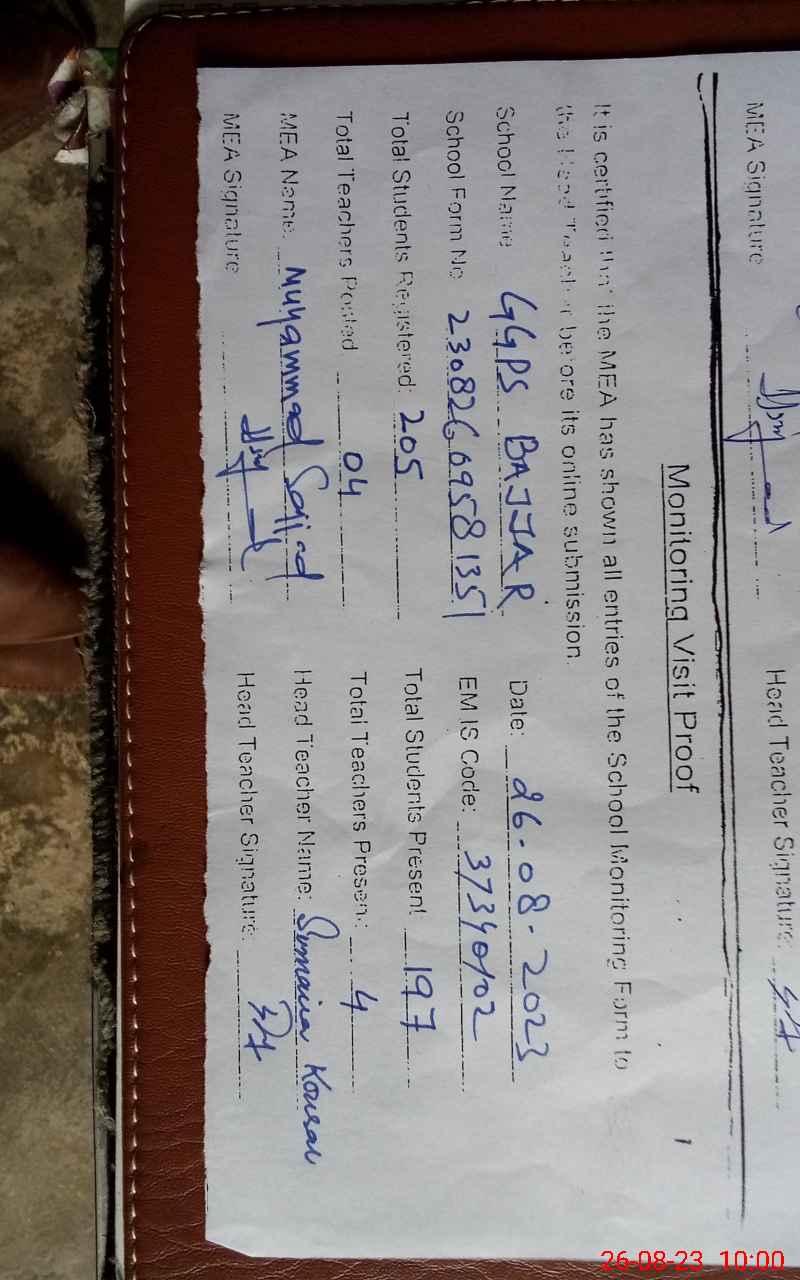 MEA Signature Head Teacher Signature:
Monitoring Visit Proof 1
It is certified that the MEA has shown all entries of the School Monitoring Form to
the Head Teacher before its online submission.
School Name GGPS BAJJAR Date: 26-08-2023
School Form No 2308266958 1351 EMIS Code: 37340102
Total Students Registered: 205 Total Students Present 197
Total Teachers Posted 04 Total Teachers Present: 4
MEA Name: Muhammad Sajjad Head Teacher Name: Sumaira Kousar
MEA Signature Head Teacher Signature:
26-08-23 10:00